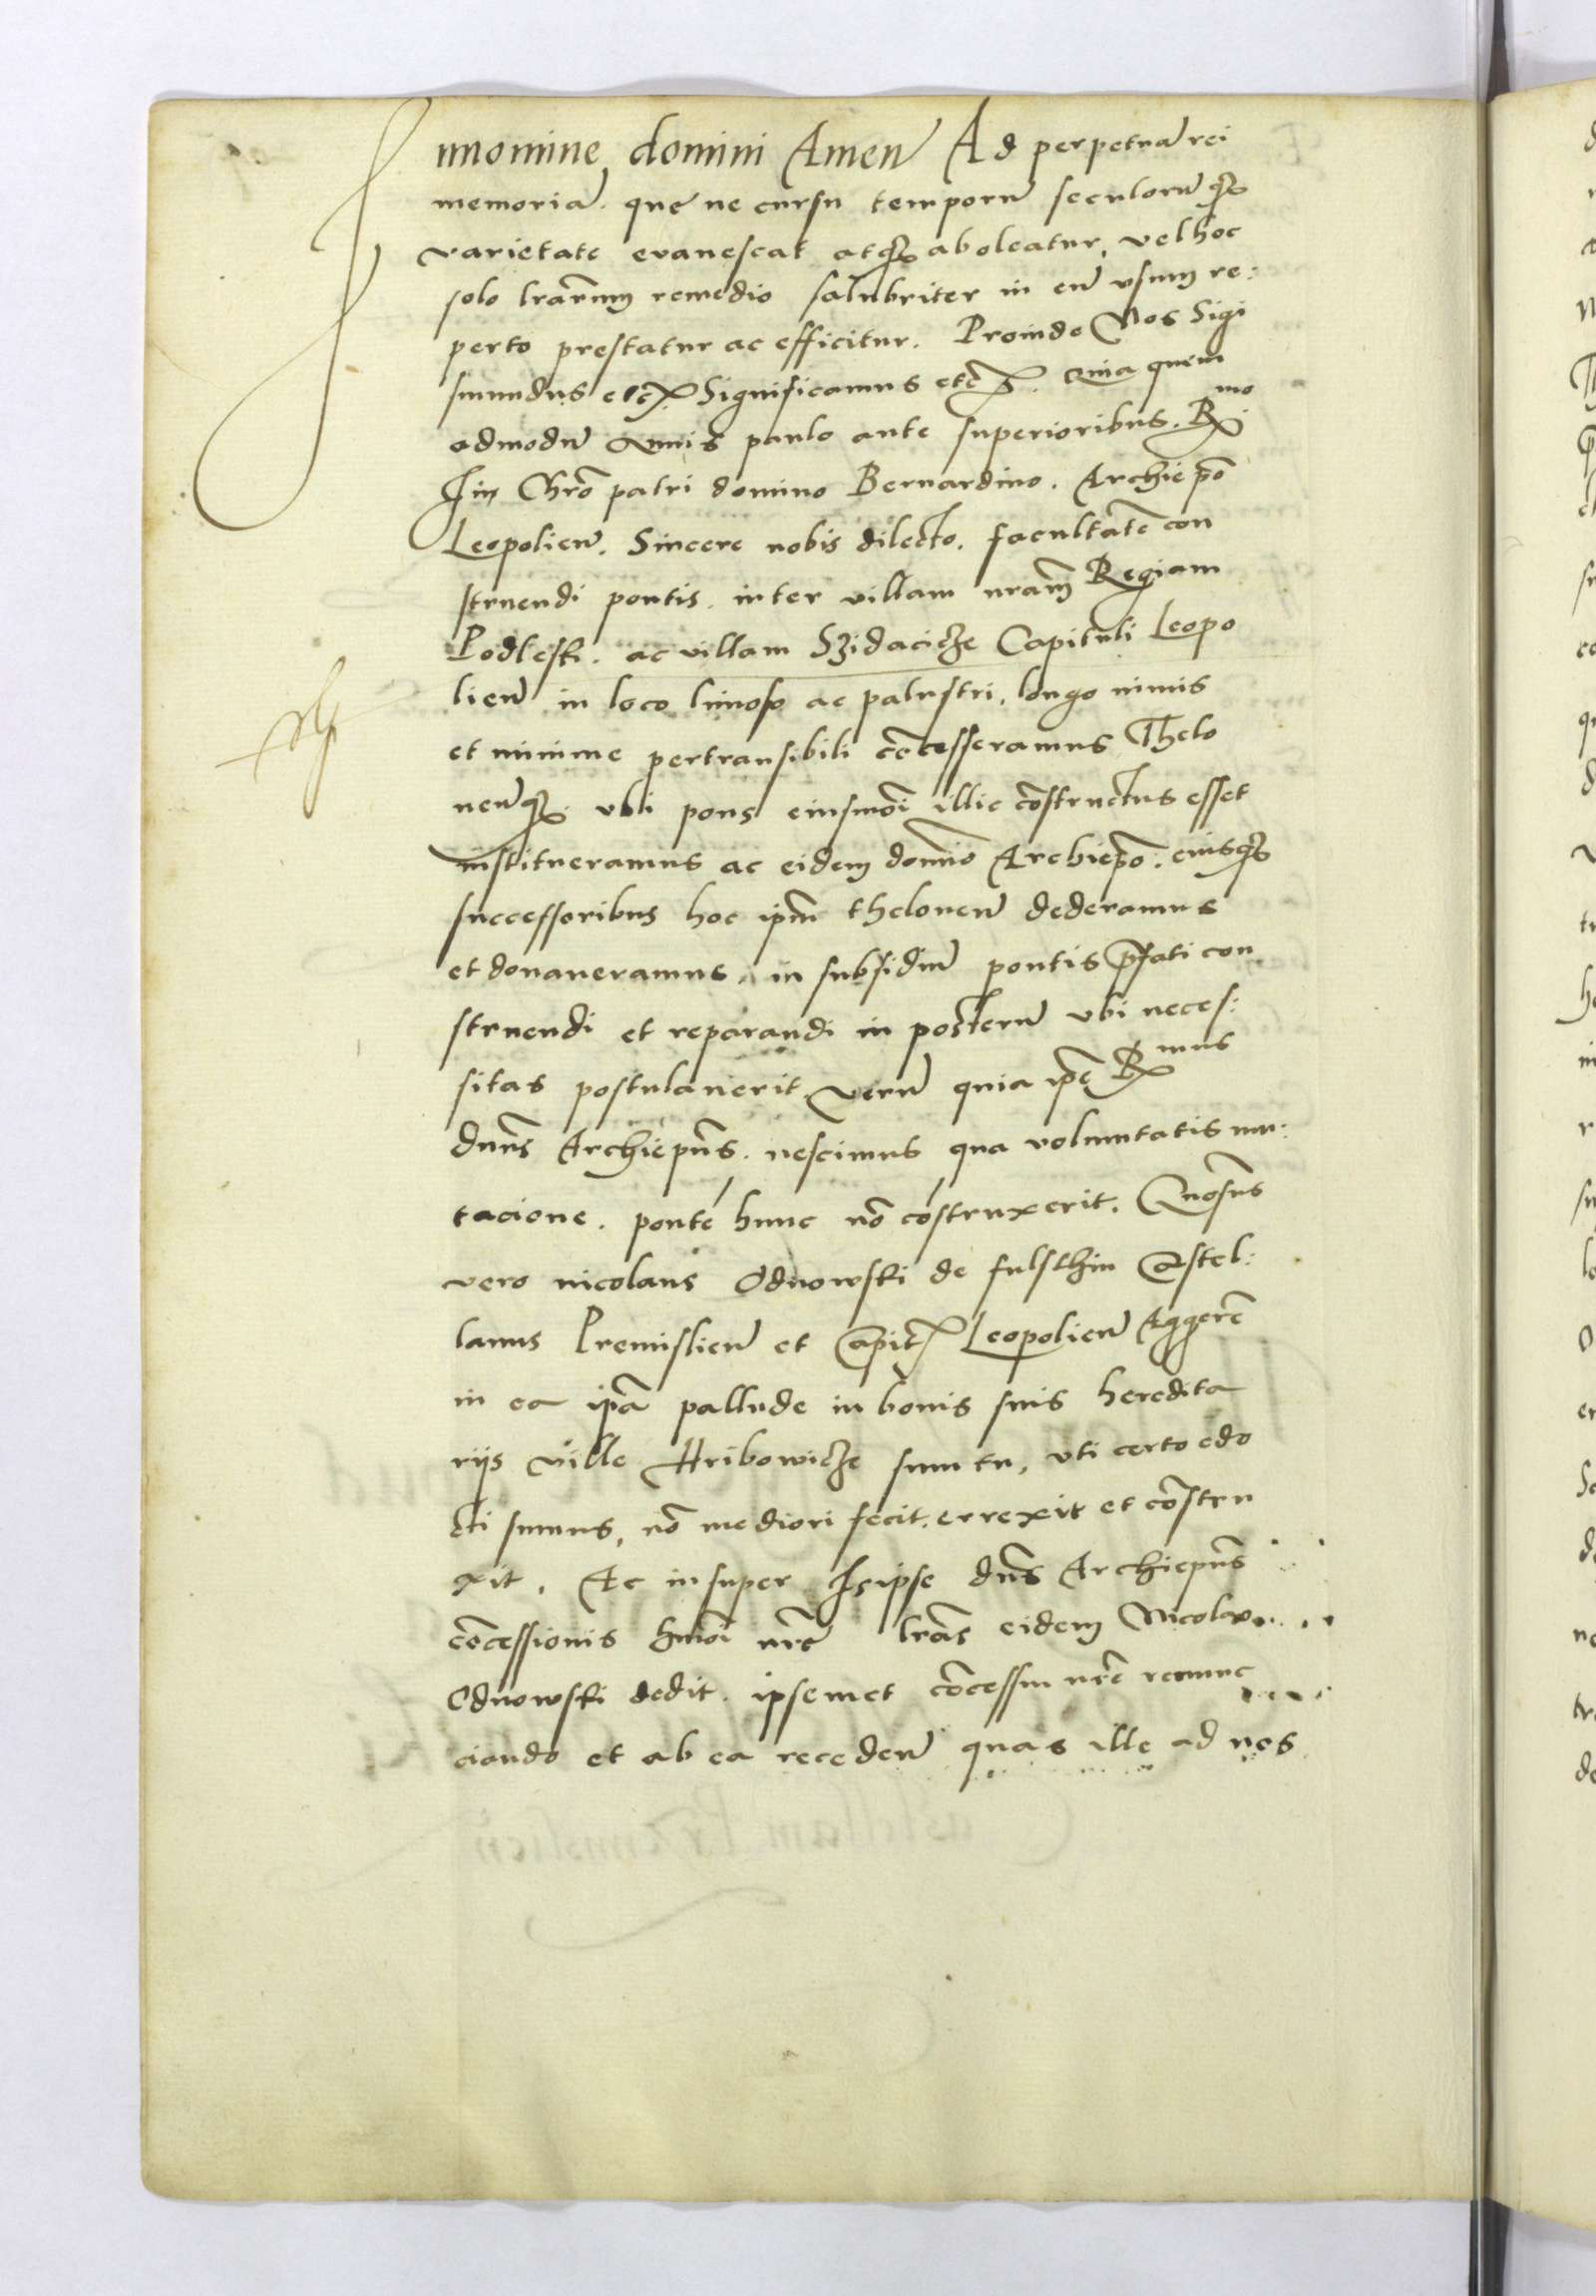 In nomine domini Amen Ad perpetuā rei
memoriā. que ne cursu temporū seculorūq₃
varietate evanescat atq₃ aboleatur, vel hoc
solo lrārum remedio salubriter in eū usum re:
perto prestatur ac efficitur. Proinde Nos Sigi
smundus etc. Significamus etc. Quia quem
admodū Annis paulo ante superioribus. Rmo
In Chrō patri domino Bernardino. Archiepō
Leopolien̄. Sincere nobis dilecto. facultatē con
struendi pontis. inter villam nrām Regiam
Podleski. ac villam Szidacicze Capituli Leopo
lien̄ in loco limoso ac palustri, longo nimis
et minime pertransibili cōcesseramus Thelo
neūq₃. ubi pons eiusmōi illic cōstructus esset
institueramus ac eidem domīo Archiepō. eiusq₃
successoribus hoc ipm̄ theloneū dederamus
et donaveramus. in subsidiū pontis p̄fati con
struendi et reparandi in posterū ubi neces:
sitas postulaverit. verū quia ipē Rmus
dnūs Archiepūs. nescimus qua voluntatis mu:
tacione. pontē hunc nō cōstruxerit. Gnōsus
vero nicolaus Odnowski de fulsthin Castel:
lanus Premislien̄ et Capit. Leopolien̄ Aggerē
in ea ipā pallude in bonis suis heredita
rijs ville Hribowicze sumtu, uti certo edo
cti sumus, nō mediori fecit. errexit et cōstru
xit. Ac insuper Is ipse dn̄s Archiepūs
cōcessionis hmōi nrē lrās eidem Nicolao
Odnowski dedit. ipsemet cōcessiu nrē renunc
ciando et ab ea receden̄ quas ille ad nos